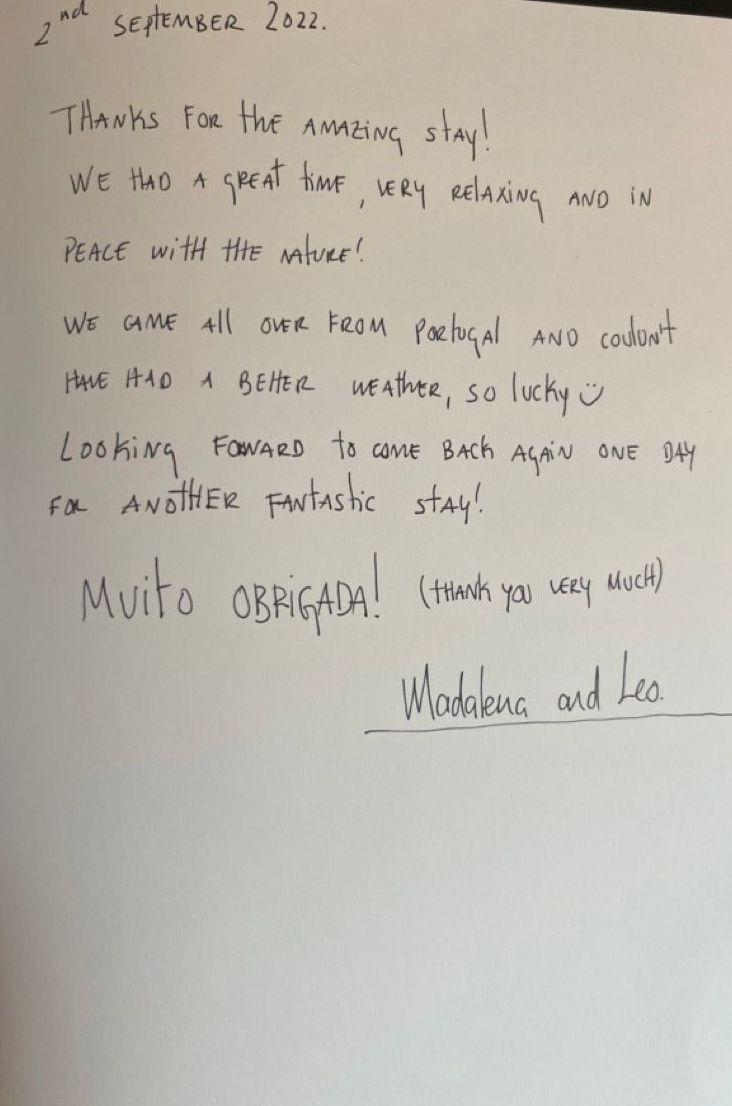 2nd SEPTEMBER 2022.
THANKS FOR the AMAZING stAy!
WE HAD A GREAT tiME, VERY RELAXING AND iN
PEACE with tHE NATURE!
WE CAME All OVER FROM PORtugAl AND couldn't
HAVE HAD A BEttER WEATHER, so lucky ☺
Looking FOWARD to COME BACk AGAiN ONE DAY
FOR ANOtHER FANtAstic stAy!
MUito OBRiGADA! (tHANK you VERY MUCH)
Madalena and Leo.